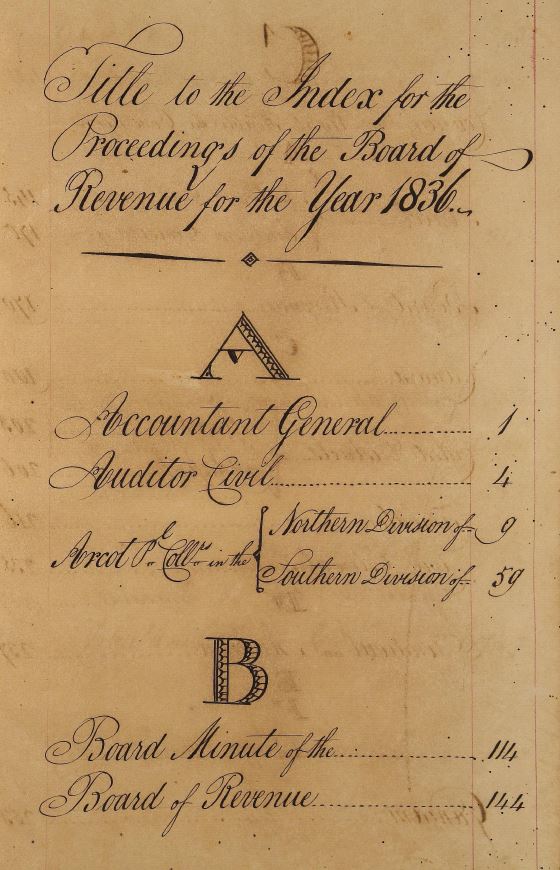 Title to the Index for the
Proceedings of the Board of
Revenue for the Year 1836.
A
Accountant General 1
Auditor Civil 4
Arcot Pl. Collrs. in the { Northern Division of 9
Southern Division of 59
B
Board Minute of the 114
Board of Revenue 144